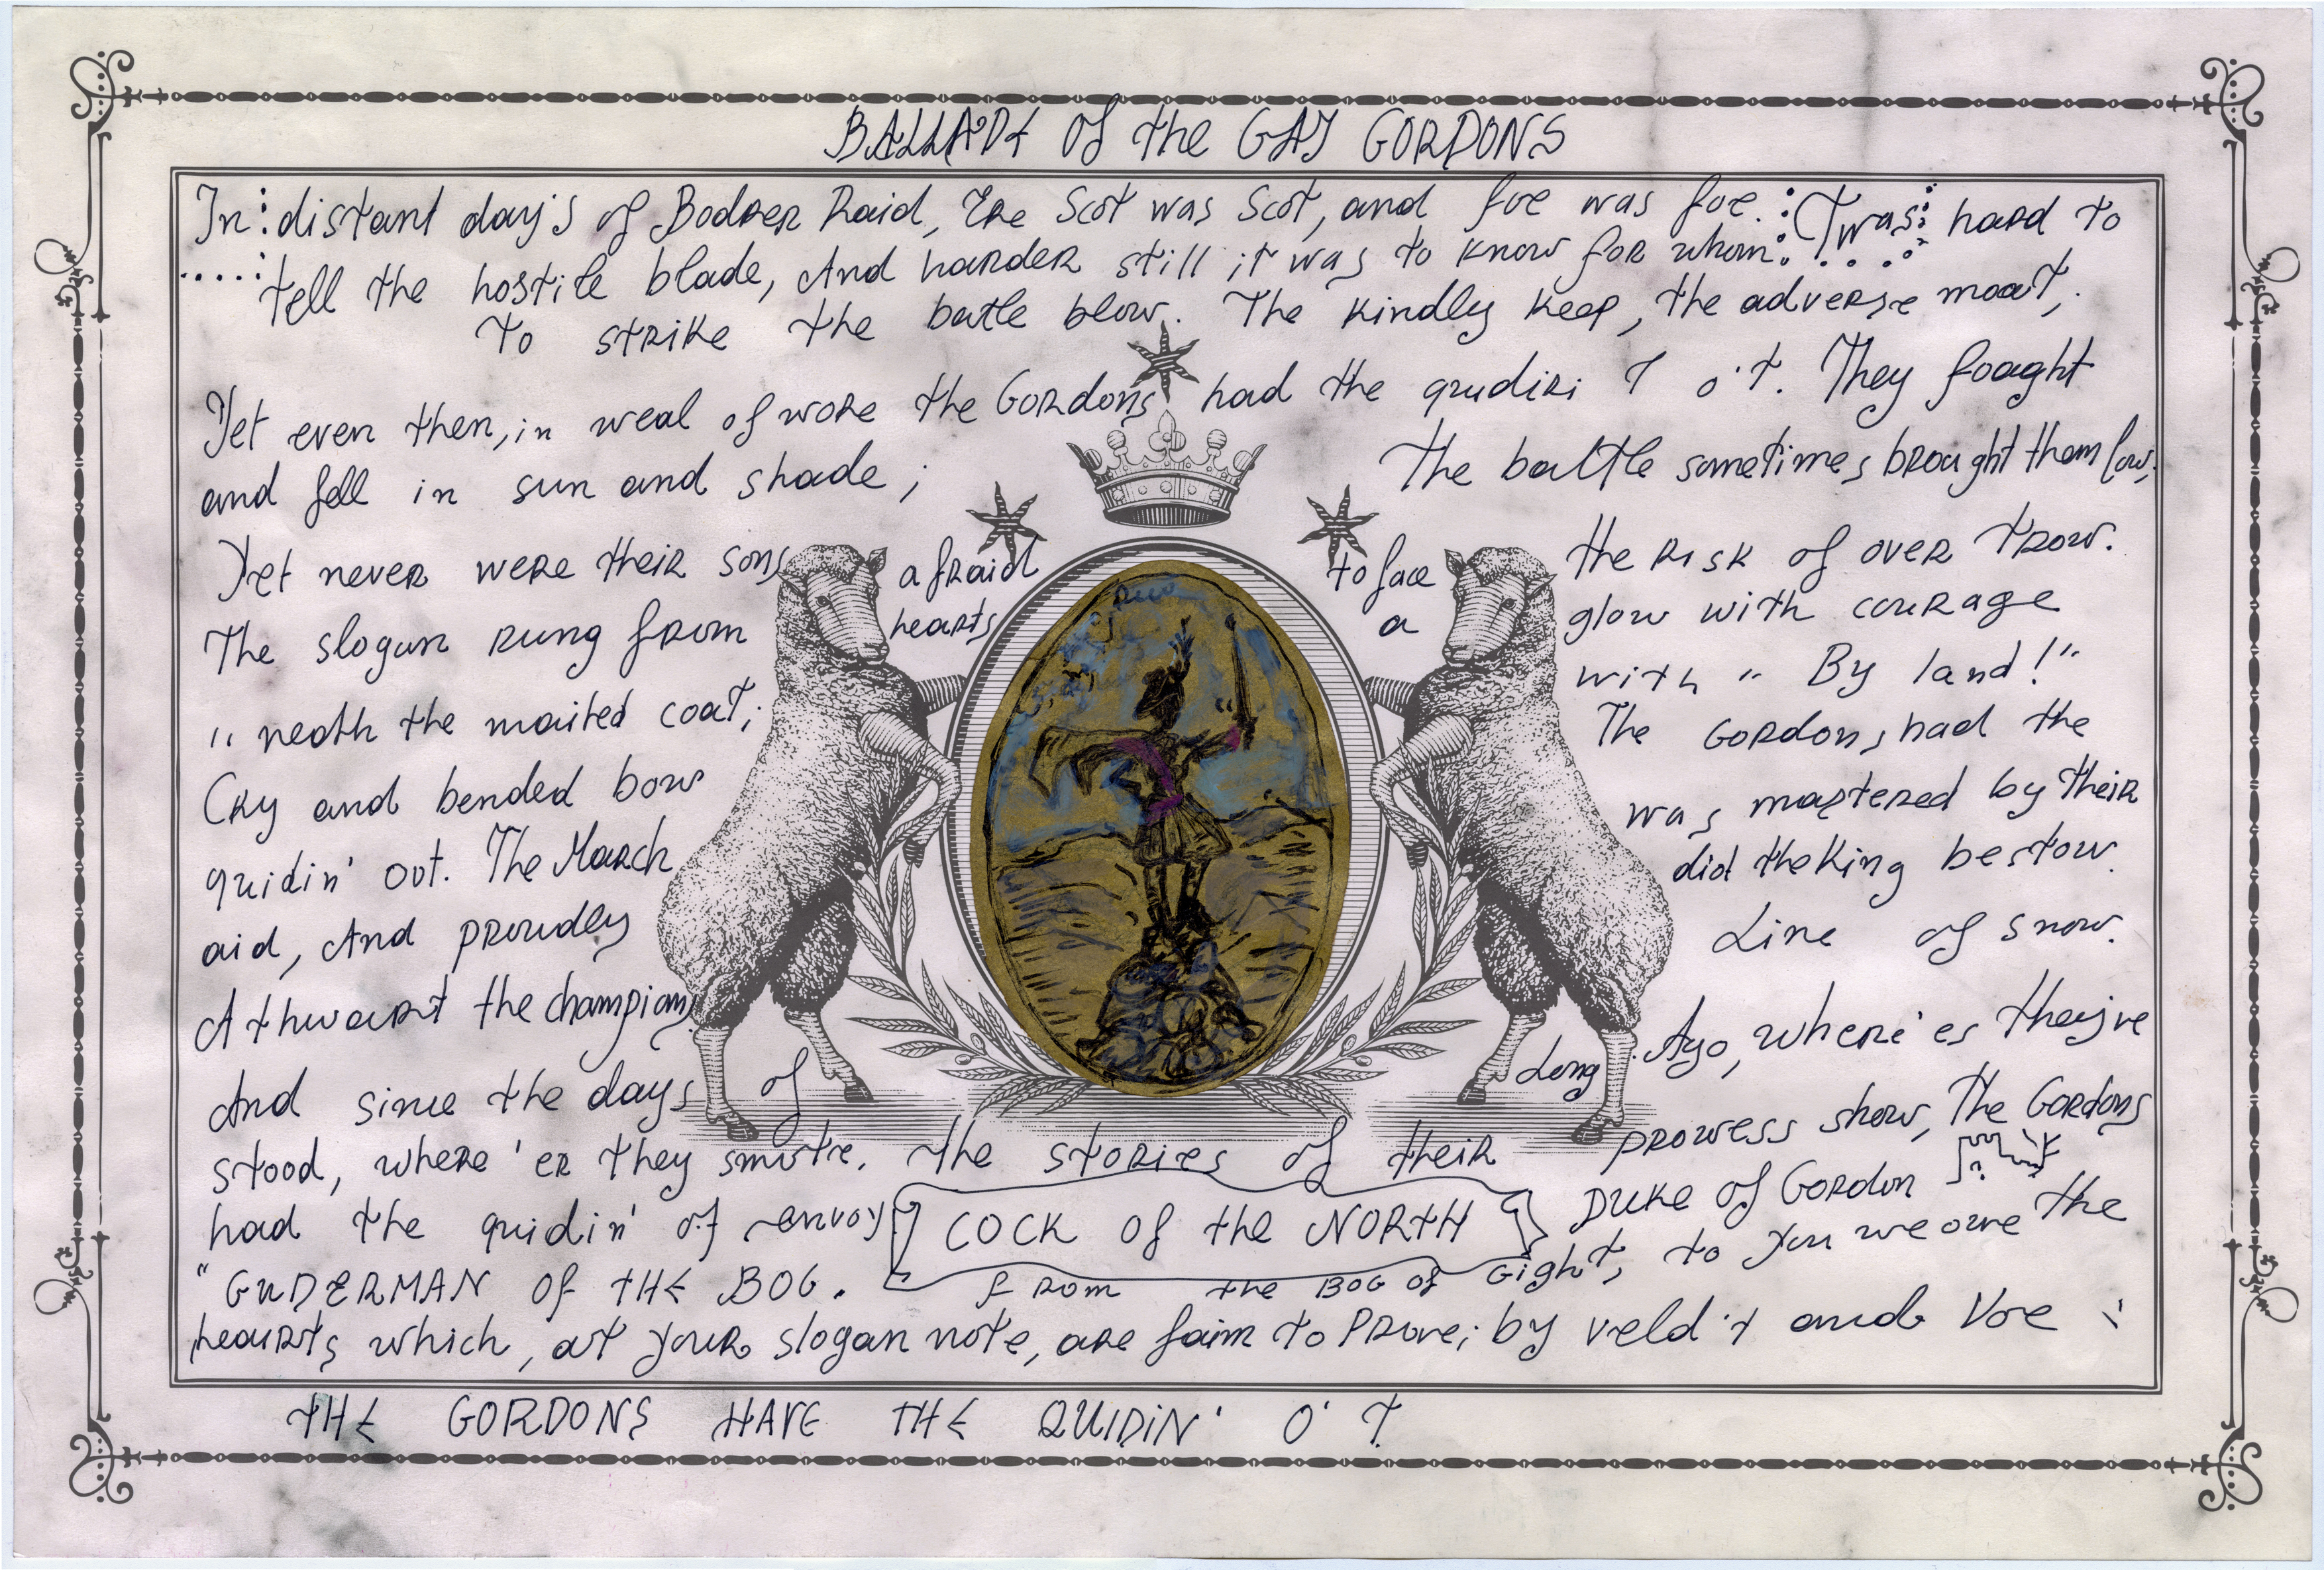 BALLADE of the GAY GORDONS
In distant day's of Bodrer Raid, Ere Scot was Scot, and foe was foe. 'Twas hard to
tell the hostile blade, And harder still it was to know for whom
to strike the batle blow. The kindly keep, the adverse moat,
Yet even then, in weal of wore the Gordons had the quidiri T o't. They foaght
and fell in sun and shade; The baltle sometimes brought them low,
Yet never were their sons afraid to face the risk of over trow.
The slogan rung from hearts a glow with courage
"neath the mailed coat; with "By land!"
Cry and bended bow The Gordons had the
quidin' out. The March was mastered by their
aid, And proudly did the King bestow.
Athwart the champions Line of snow.
And since the days of Long Ago, where'es theyve
stood, where 'er they smote. the stories of their prowess show, The Gordons
had the quidin' of envoy COCK of the NORTH DUKE of Gordon
"GUDERMAN OF THE BOG. From the BOG OF Gight, to you we owe the
hearts which, at your slogan note, are faim to Prove; by veld't and Voe
THE GORDONS HAVE THE QUIDIN' O' T